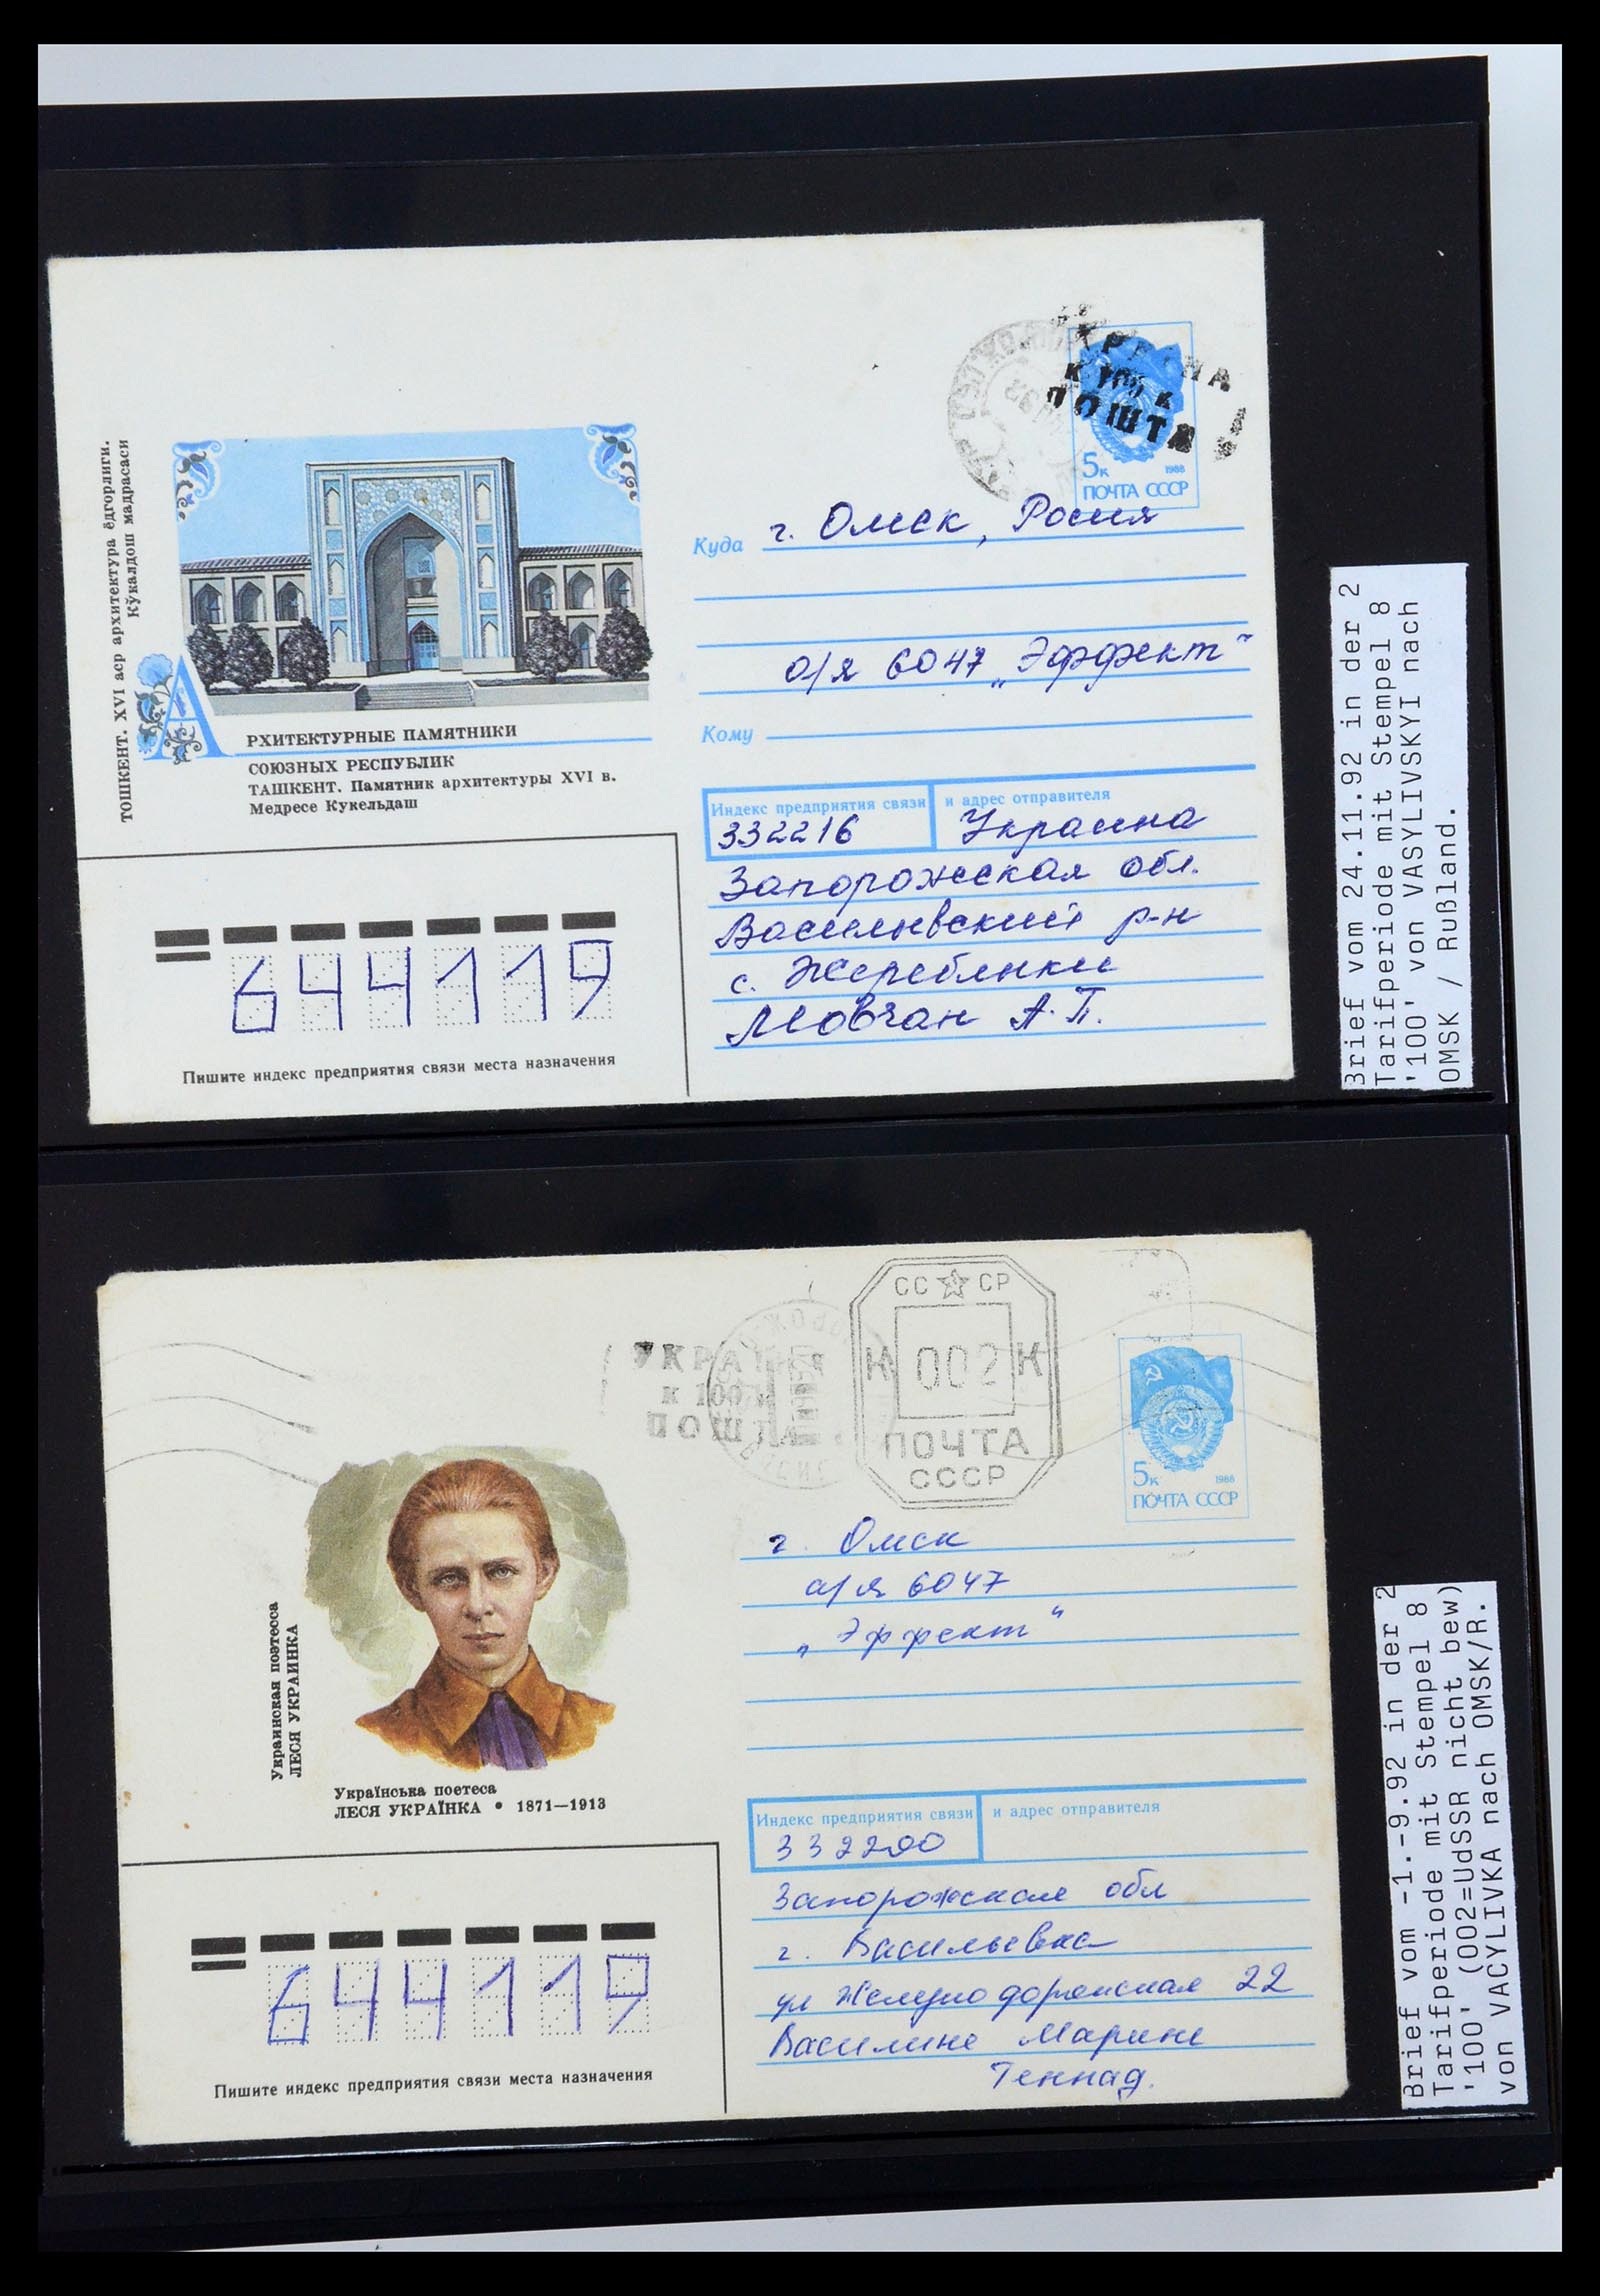 УКРАЇНА
к 100 к
ПОШТА
5к 1988
ПОЧТА СССР
Куда г. Омск, Росия
а/я 6047 „Эффект“
Кому
Индекс предприятия связи и адрес отправителя
332216 Украина
Запорожская обл.
Васильевский р-н
с. Жеребянки
Мовчан А.П.
ТОШКЕНТ. XVI аср архитектура ёдгорлиги.
Кўкалдош мадрасаси
АРХИТЕКТУРНЫЕ ПАМЯТНИКИ
СОЮЗНЫХ РЕСПУБЛИК
ТАШКЕНТ. Памятник архитектуры XVI в.
Медресе Кукельдаш
644119
Пишите индекс предприятия связи места назначения
Brief vom 24.11.92 in der 2
Tarifperiode mit Stempel 8
'100' von VASYLIVSKYI nach
OMSK / Rußland.
УКРАЇНА
к 100 к
ПОШТА
СС СР
К 002 К
ПОЧТА
СССР
5к 1988
ПОЧТА СССР
г. Омск
а/я 6047
„Эффект“
Украинская поэтесса
ЛЕСЯ УКРАИНКА
Українська поетеса
ЛЕСЯ УКРАЇНКА • 1871—1913
Индекс предприятия связи и адрес отправителя
332200
Запорожская обл
г. Васильевка
ул Железнодорожная 22
Василине Марине
Геннад.
644119
Пишите индекс предприятия связи места назначения
Brief vom -1.-9.92 in der 2
Tarifperiode mit Stempel 8
'100' (002=UdSSR nicht bew)
von VACYLIVKA nach OMSK/R.